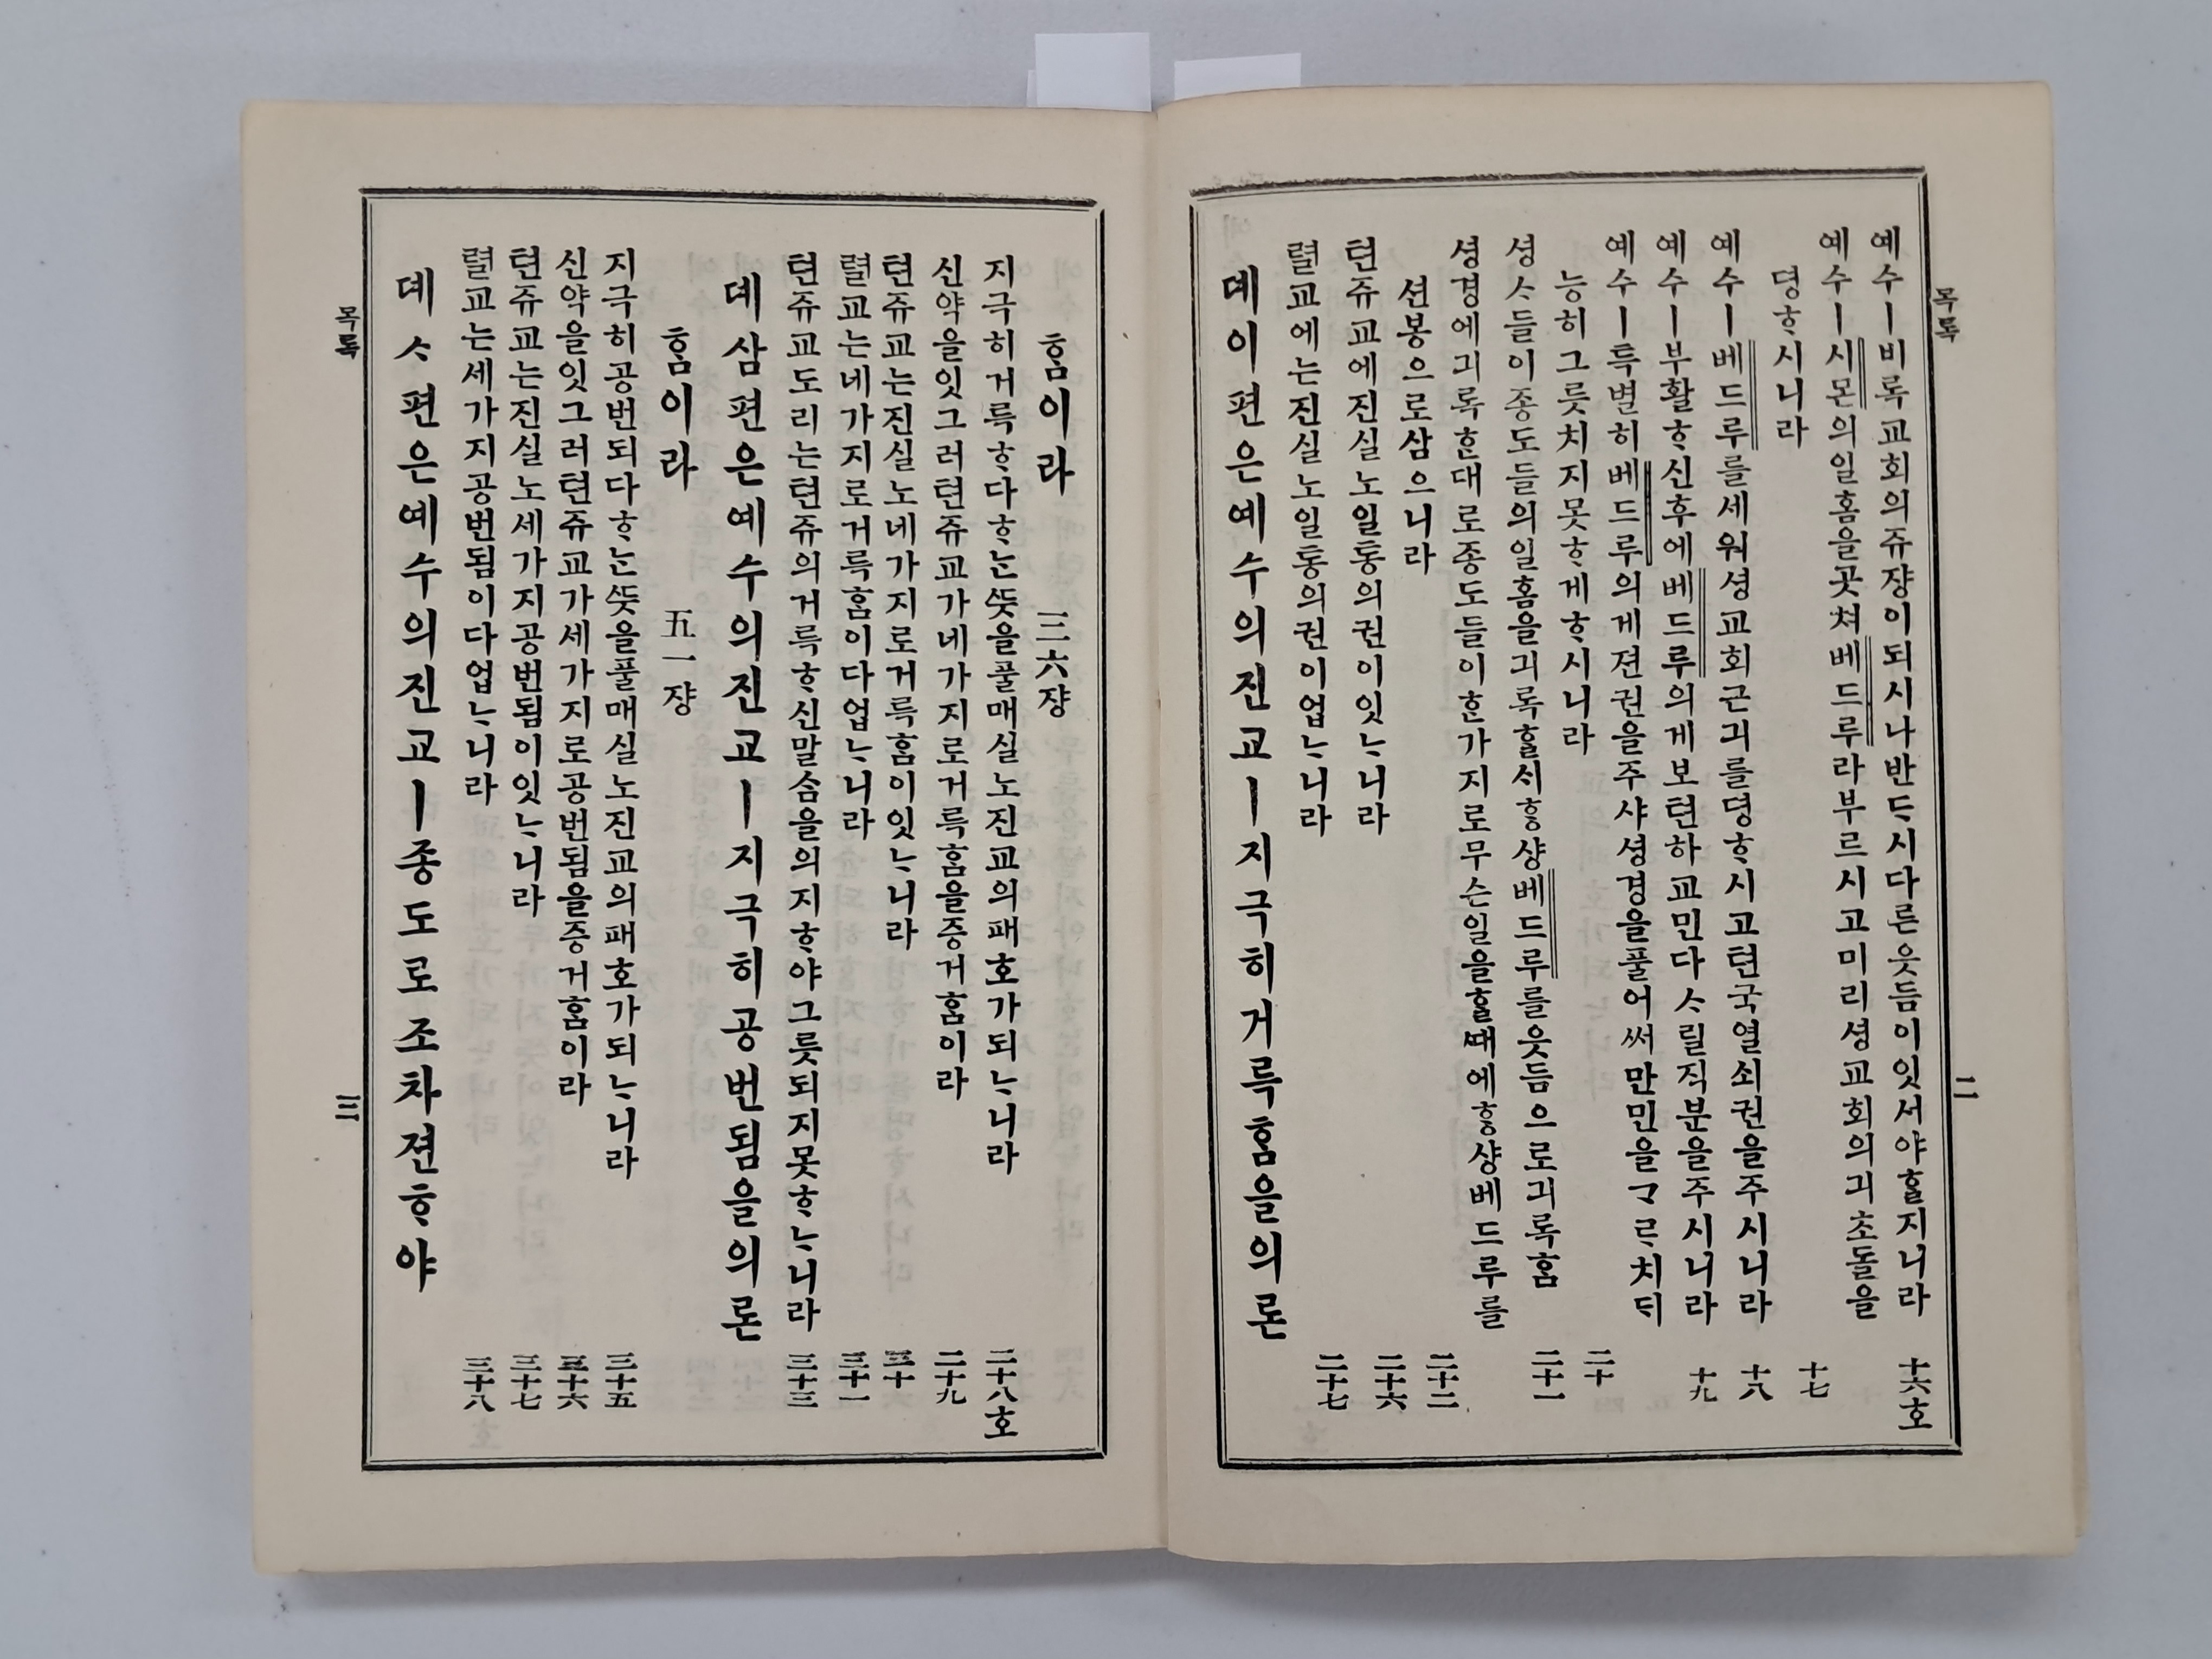 목록
二
예수ㅣ비록교회의쥬쟝이되시나반ᄃᆞ시다른읏듬이잇서야ᄒᆞᆯ지니라 十六호
예수ㅣ시몬의일홈을곳쳐베드루라부르시고미리셩교회의긔초돌을
뎡ᄒᆞ시니라 十七
예수ㅣ베드루를세워셩교회근긔를뎡ᄒᆞ시고텬국열쇠권을주시니라 十八
예수ㅣ부활ᄒᆞ신후에베드루의게보텬하교민다ᄉᆞ릴직분을주시니라 十九
예수ㅣ특별히베드루의게젼권을주샤셩경을풀어써만민을ᄀᆞᄅᆞ치ᄃᆡ
능히그릇치지못ᄒᆞ게ᄒᆞ시니라 二十
셩ᄉᆞ들이종도들의일홈을긔록ᄒᆞᆯᄉᆡᄒᆞᆼ샹베드루를읏듬으로긔록ᄒᆞᆷ 二十一
셩경에긔록ᄒᆞᆫ대로종도들이ᄒᆞᆫ가지로무슨일을ᄒᆞᆯ때에ᄒᆞᆼ샹베드루를
션봉으로삼으니라 二十二
텬쥬교에진실노일통의권이잇ᄂᆞ니라 二十六
렬교에는진실노일통의권이업ᄂᆞ니라 二十七
뎨이편은예수의진교ㅣ지극히거륵ᄒᆞᆷ을의론
ᄒᆞᆷ이라 三六쟝
지극히거륵ᄒᆞ다ᄒᆞᄂᆞᆫᄯᅳᆺ을풀매실노진교의패호가되ᄂᆞ니라 二十八호
신약을잇그러텬쥬교가네가지로거륵ᄒᆞᆷ을증거ᄒᆞᆷ이라 二十九
텬쥬교는진실노네가지로거륵ᄒᆞᆷ이잇ᄂᆞ니라 三十
렬교는네가지로거륵ᄒᆞᆷ이다업ᄂᆞ니라 三十一
텬쥬교도리는텬쥬의거륵ᄒᆞ신말ᄉᆞᆷ을의지ᄒᆞ야그릇되지못ᄒᆞᄂᆞ니라 三十三
뎨삼편은예수의진교ㅣ지극히공번됨을의론
ᄒᆞᆷ이라 五一쟝
지극히공번되다ᄒᆞᄂᆞᆫᄯᅳᆺ을풀매실노진교의패호가되ᄂᆞ니라 三十五
신약을잇그러텬쥬교가세가지로공번됨을증거ᄒᆞᆷ이라 三十六
텬쥬교는진실노세가지공번됨이잇ᄂᆞ니라 三十七
렬교는세가지공번됨이다업ᄂᆞ니라 三十八
뎨ᄉᆞ편은예수의진교ㅣ종도로조차젼ᄒᆞ야
목록
三